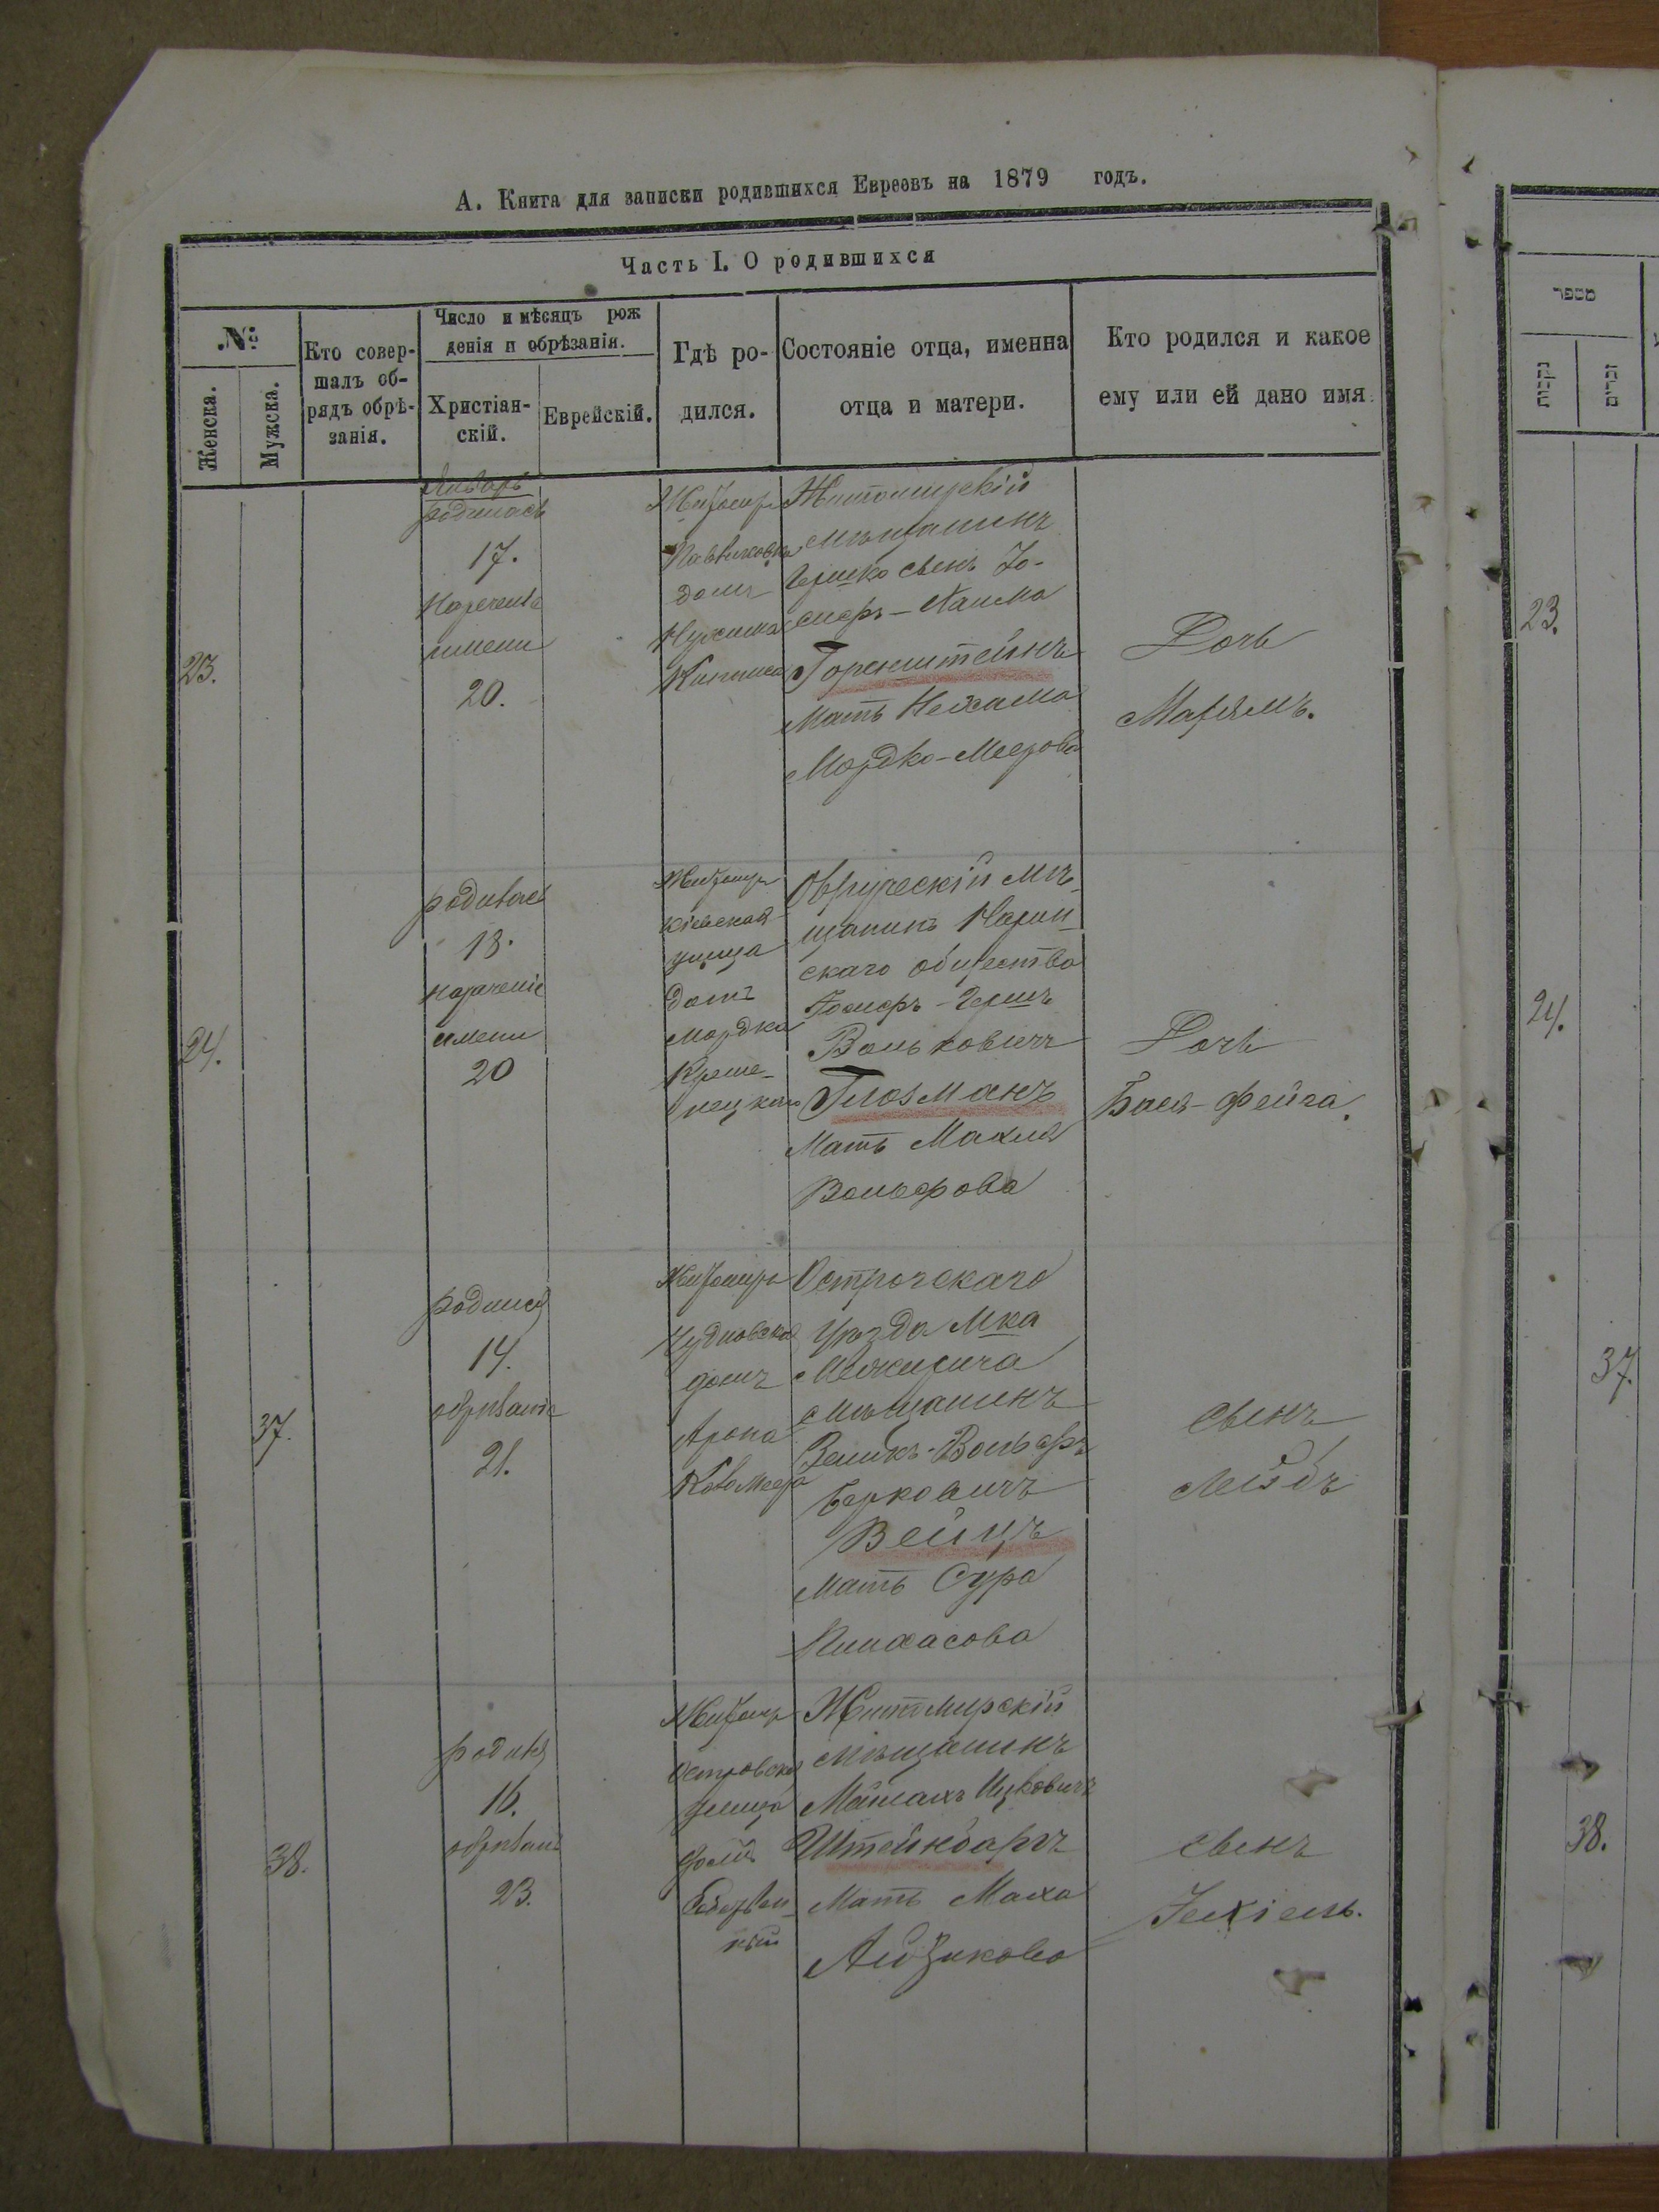 А. Книга для записки родившихся Евреевъ на 1879 годъ.
Часть I. О родившихся
№
Женска.
Мужска.
Кто совер-
шалъ об-
рядъ обрѣ-
занія.
Число и мѣсяцъ рож
денія и обрѣзанія.
Христіан-
скій.
Еврейскій.
Гдѣ ро-
дился.
Состояніе отца, именна
отца и матери.
Кто родился и какое
ему или ей дано имя.
23.
Январь
родилась
17.
Нареченіе
имени
20.
Житомиръ
домъ
Житомирскій
мѣщанинъ
Гершко сынъ Іо-
сифъ-Хаима
Горенштейнъ
Мать Нехама
Мордко-Меерова
Дочь
Маріямъ.
24.
родилась
18.
нареченіе
имени
20
Житомиръ
Кіевская
улица
домъ
Мордка
Креме-
нецкаго
Овручскій мѣ-
щанинъ Нарин-
скаго общества
Іосифъ-Гершъ
Вольковичъ
Глозманъ
Мать Махля
Вольфова
Дочь
Бася-Фейга.
37.
родился
14.
обрѣзаніе
21.
Житомиръ
Чудновская
домъ
Арона
Острогскаго
Уѣзда Мка
Межирича
мѣщанинъ
Зеликъ-Вольфъ
Берковичъ
Вейцъ
Мать Сура
Пинхасова
сынъ
Лейбъ
38.
родился
16.
обрѣзаніе
23.
Житомиръ
улица
домъ
Житомирскій
мѣщанинъ
Ицковичъ
Штейнбаргъ
Мать Маха
Айзикова
сынъ
Іехіель.
מספר
נקבות
זכרים
23.
24.
37.
38.